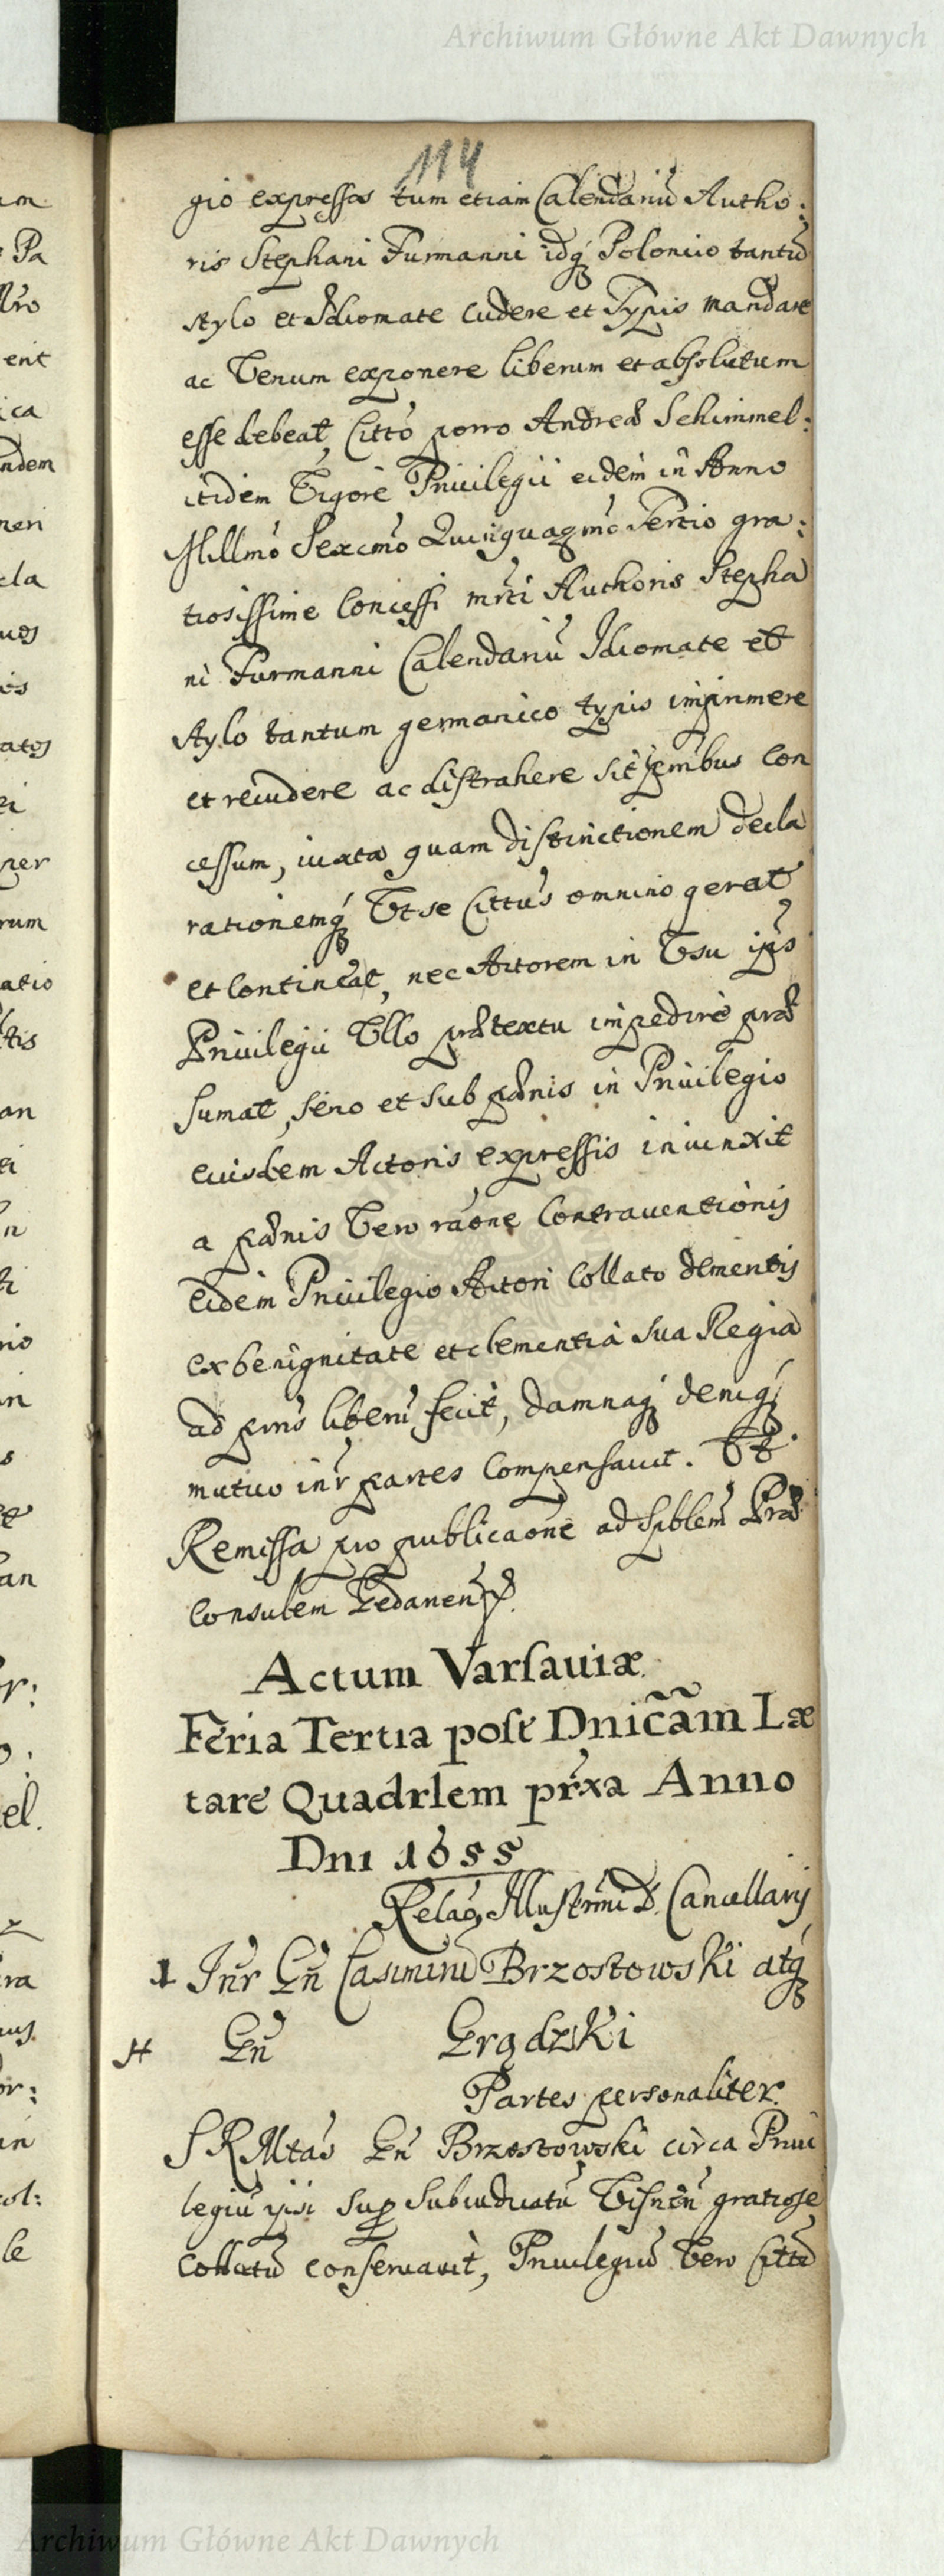 Archiwum Główne Akt Dawnych
114
gio expressas tum etiam Calendariũ Autho:
ris Stephani Furmanni idq́ Polonico tantũ
stylo et Idiomate cudere et Typis mandare
ac Venum exponere liberum et absolutum
esse debeat, Citto porro Andreæ Schimmel:
itidem Vigore Priuilegii eidem in Anno
Millmo Sexcmo Quinquagmo Tertio gra:
tiosissime Concessi mrti Authoris Stepha
ni Furmanni Calendariũ Idiomate et
stylo tantum germanico typis imprimere
et recudere ac distrahere sit pẽntibus con
cessum, iuxta quam distinctionem decla
rationemq́ Vt se Cittus omnino gerat
et contineat, nec Actorem in Vsu ipſs
Priuilegii Vllo prætextu impedire præ
sumat, serio et sub pænis in Priuilegio
euisdem Actoris expressis iniunxit
a pænis Vero raõne Contrauentionis
eidem Priuilegio Actori Collato dementis
ex benignitate et clementia sua Regia
ad pñns liberũ fecit, damnaq́ deniq́
mutuo inr̃ partes Compensauit. Et
Remissa pro publicaõne ad Spblem Præ
consulem Gedanensẽ.
Actum Varsauiæ.
Feria Tertia post Dnicam Læ
tare Quadrlem prxa Anno
Dni 1655
Relaõ Illustrmi D. Cancellarij
1 Inr̃ Gñ Casimirũ Brzostowski atq́
Gñ Grądzki
Partes personaliter.
S R Mtas Gñ Brzostowski circa Priui
legiũ ipsi sup Subiudicatũ Visnen gratiose
Collatũ conseruauit, Priuilegiũ Vero Cittũ
Archiwum Główne Akt Dawnych